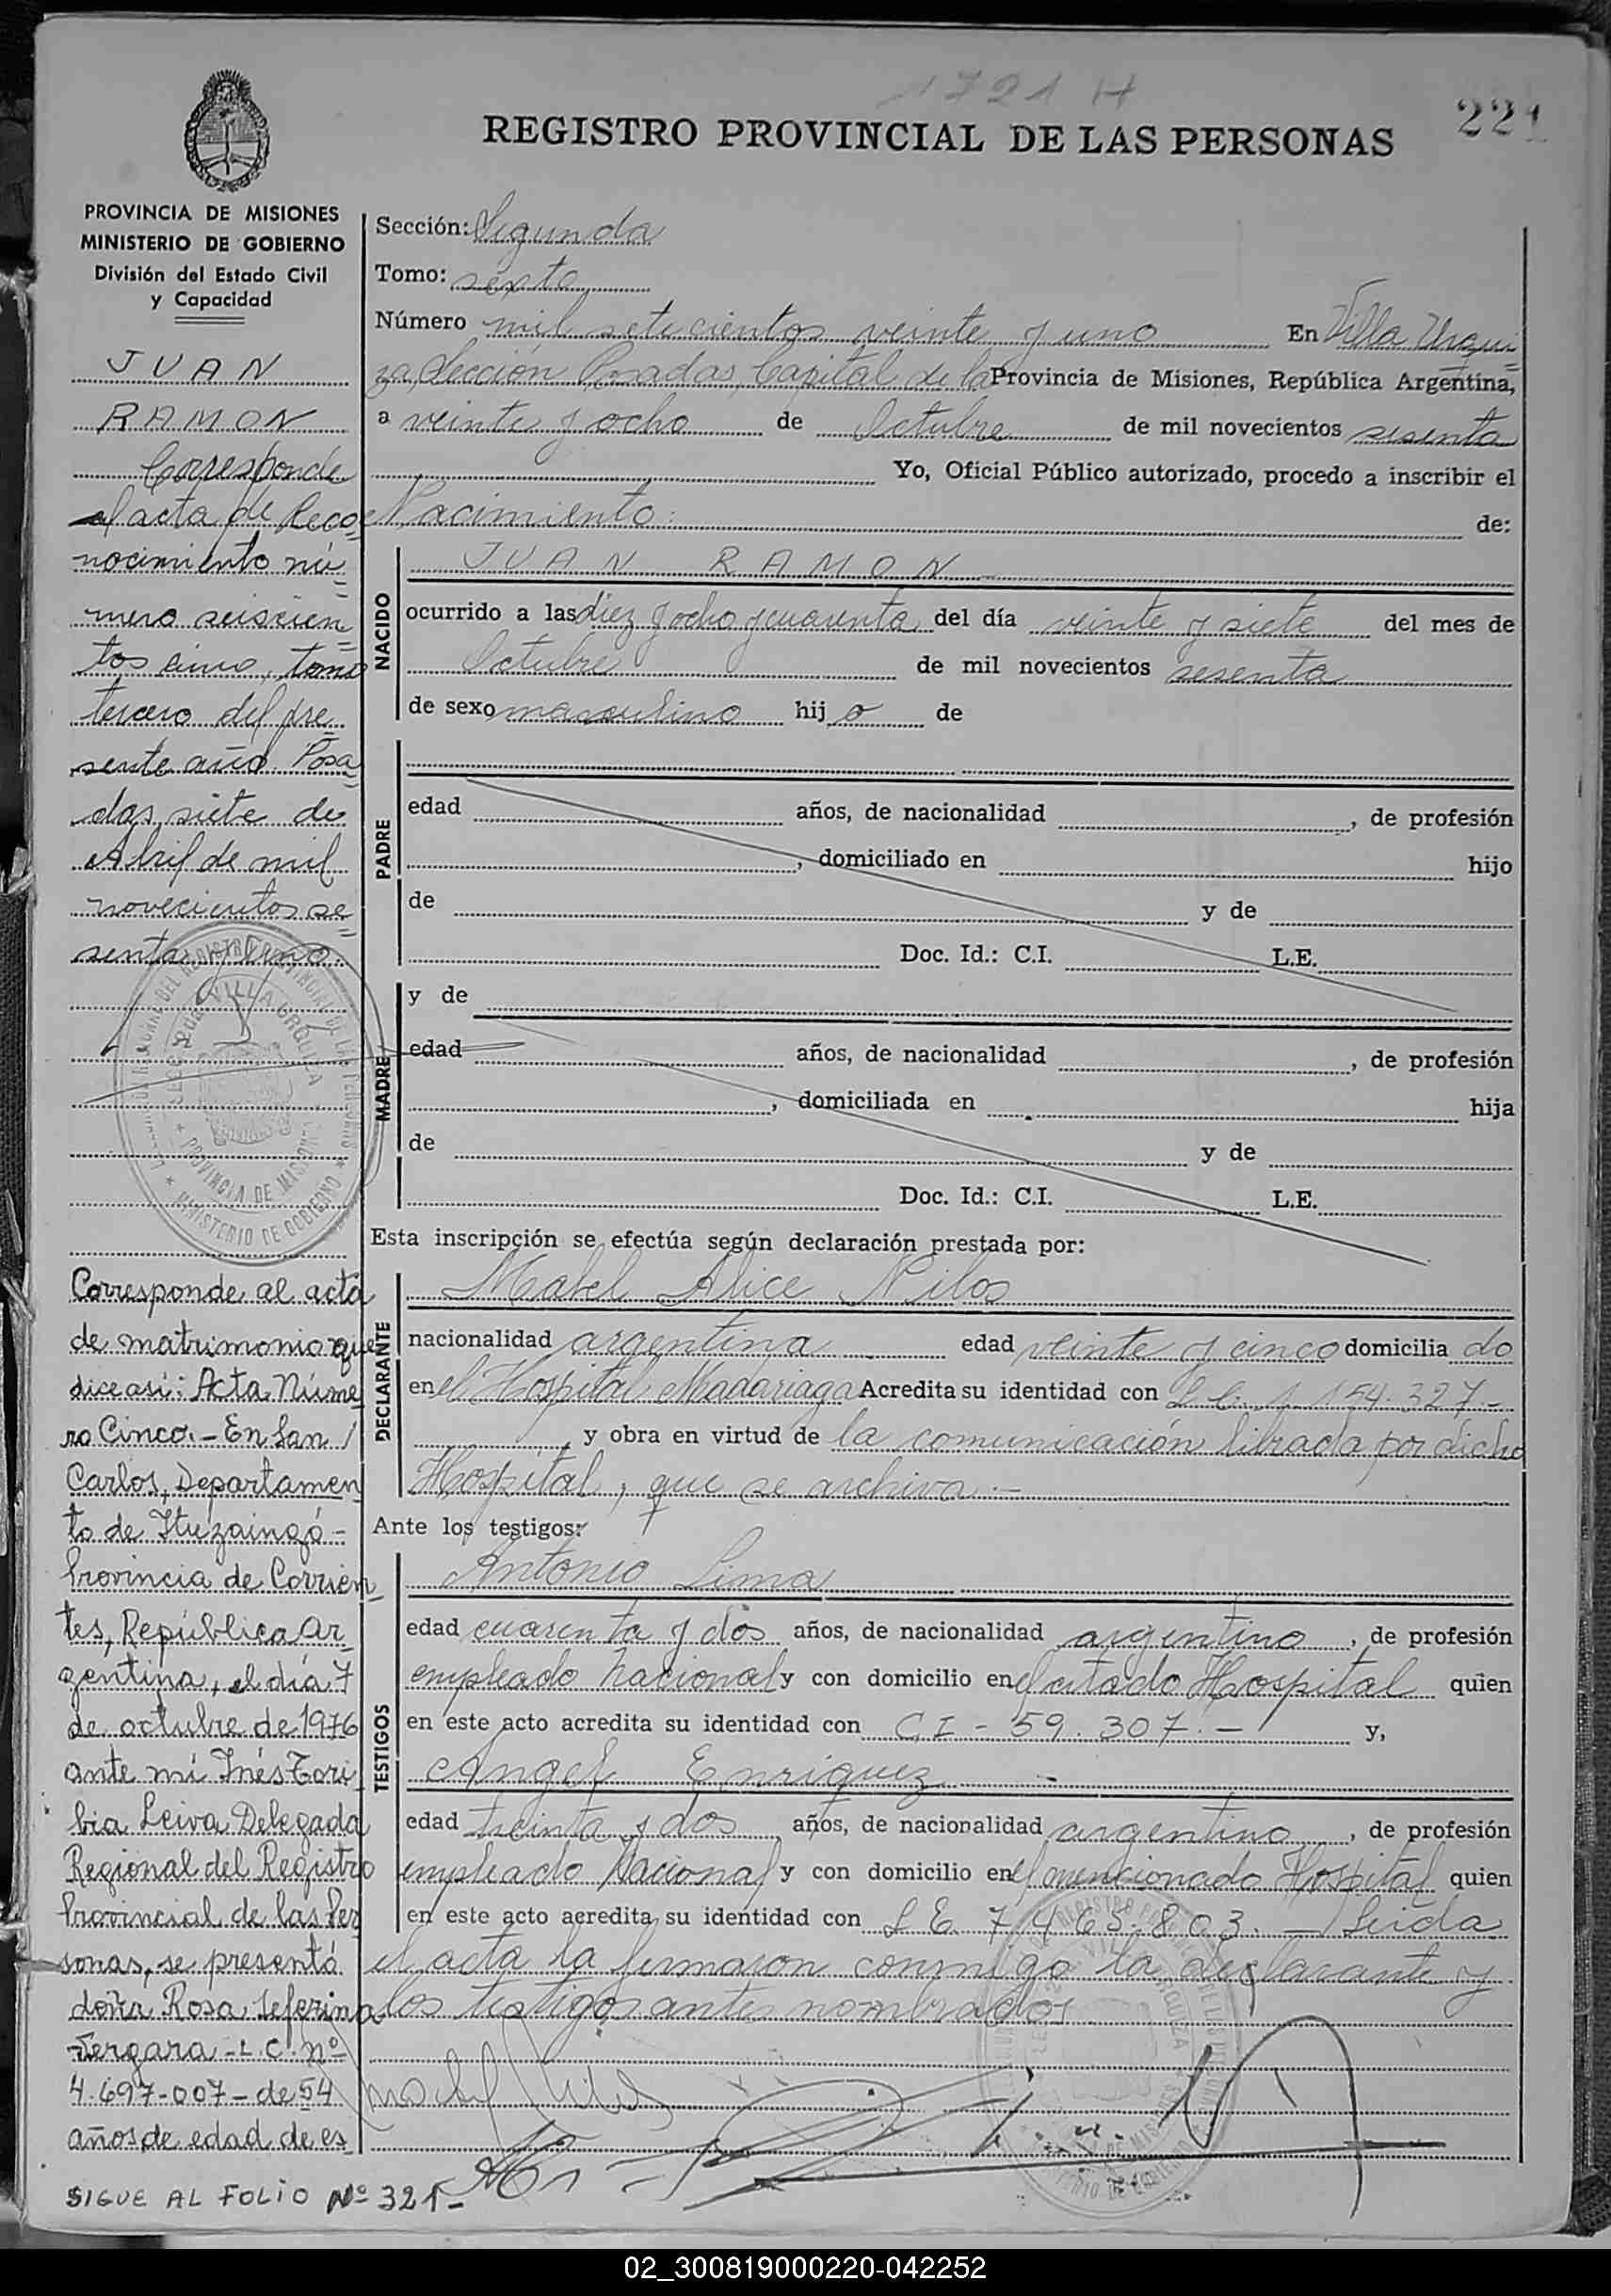 1721 H
221
REGISTRO PROVINCIAL DE LAS PERSONAS
PROVINCIA DE MISIONES
MINISTERIO DE GOBIERNO
División del Estado Civil
y Capacidad
JUAN
RAMON
Corresponde
al acta de Reco-
nocimiento nú-
mero seiscien-
tos cinco, tomo
tercero del pre-
sente año. Posa-
das, siete de
Abril de mil
novecientos se-
senta y uno.
Corresponde al acta
de matrimonio que
dice así: Acta Núme
ro Cinco.- En San
Carlos, Departamen
to de Ituzaingó -
Provincia de Corrien
tes, República Ar
gentina, el día 7
de octubre de 1976
ante mí Inés Tori
bia Leiva Delegada
Regional del Registro
Provincial de las Per
sonas, se presentó
doña Rosa Seferina
Vergara - L.C. nº
4.697-007- de 54
años de edad de es
SIGUE AL FOLIO Nº 321-
Sección: Segunda
Tomo: sexto
Número mil setecientos veinte y uno En Villa Urqui
za, Sección Posadas, Capital de la Provincia de Misiones, República Argentina,
a veinte y ocho de Octubre de mil novecientos sesenta
Yo, Oficial Público autorizado, procedo a inscribir el
Nacimiento: de:
NACIDO
JUAN RAMON
ocurrido a las diez y ocho y cuarenta del día veinte y siete del mes de
Octubre de mil novecientos sesenta
de sexo masculino hij o de
PADRE
edad años, de nacionalidad , de profesión
, domiciliado en hijo
de y de
Doc. Id.: C.I. L.E.
MADRE
y de
edad años, de nacionalidad , de profesión
, domiciliada en hija
de y de
Doc. Id.: C.I. L.E.
Esta inscripción se efectúa según declaración prestada por:
DECLARANTE
Mabel Alice Nilos
nacionalidad argentina edad veinte y cinco domicilia do
en el Hospital Madariaga Acredita su identidad con L C. 1.154.327.-
, y obra en virtud de la comunicación librada por dicho
Hospital, que se archiva.-
Ante los testigos:
TESTIGOS
Antonio Lima
edad cuarenta y dos años, de nacionalidad argentino , de profesión
empleado nacional y con domicilio en el citado Hospital quien
en este acto acredita su identidad con C I - 59.307.- y,
Angel Enriquez -
edad treinta y dos años, de nacionalidad argentino , de profesión
empleado Nacional y con domicilio en el mencionado Hospital quien
en este acto acredita su identidad con L E. 7.465.803. - Leída
el acta la firmaron conmigo la declarante y
los testigos antes nombrados
02_300819000220-042252